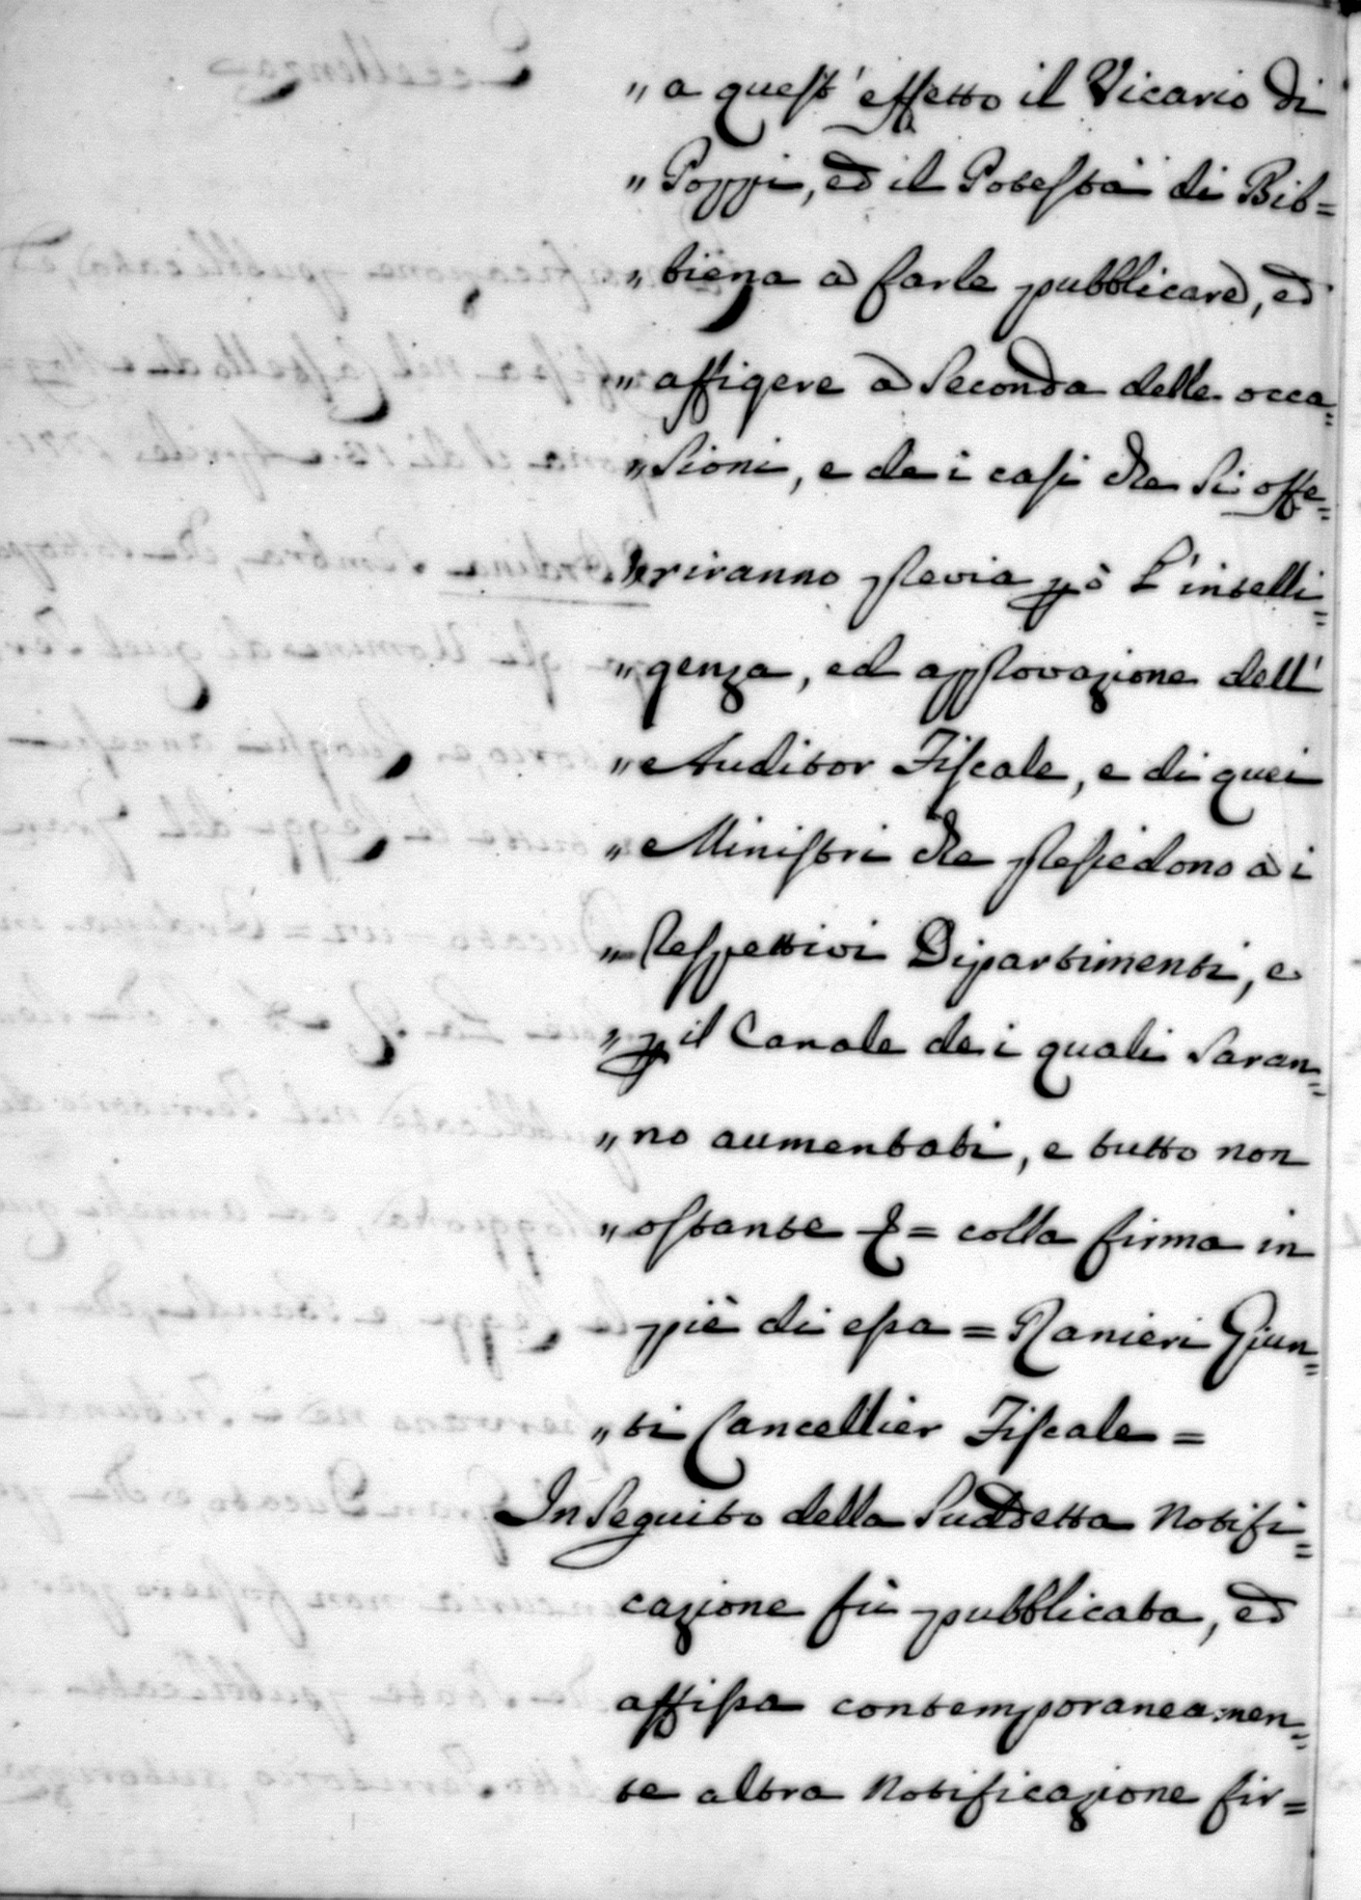 „ a quest' effetto il Vicario di
„ Poppi, ed il Potestà di Bib=
„ biena à farle pubblicare, ed
„ affigere à Seconda delle occa=
„ Sioni, e de i casi che Si offe=
„ riranno previa pò L'intelli=
„ genza, ed approvazione dell'
„ Auditor Fiscale, e di quei
„ Ministri che presiedono à i
„ Respettivi Dipartimenti, e
„ p il Canale de i quali Saran=
„ no aumentati, e tutto non
„ ostante &= colla firma in
piè di essa = Ranieri Giun=
„ ti Cancellier Fiscale =
In Seguito della Suddetta Notifi=
cazione fù pubblicata, ed
affissa contemporaneamen=
te altra Notificazione fir=